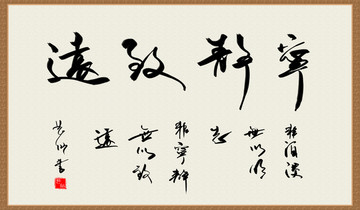 寧靜致遠
非
無以明
志
非寧靜
無以致
遠